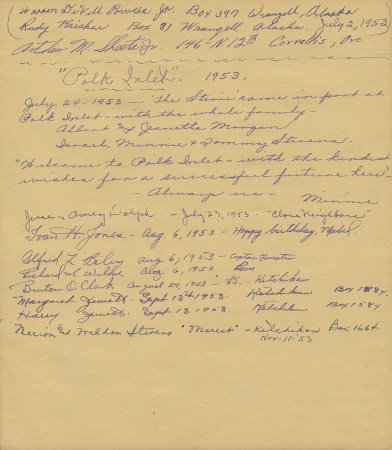 Warren DeVell Powers Jr. Box 397 Wrangell, Alaska
Rudy Box 81 Wrangell Alaska July 2, 1953
Arthur M. Jr. 146-N. 12th Corvallis, Ore.
"Polk Inlet" 1953.
July 24-1953 - The came in port at
Polk Inlet - with the whole family -
Albert & Jeanette Morgan
Israel, Minnie & Tommy Stevens.
"Welcome to Polk Inlet - with the kindest
wishes for a successful fortune here"
- Always us - Minnie
Jesse & Amey - July 27, 1953 - "Close Neighbors"
Fran H. Jones - Aug 6, 1953 - Happy birthday, Mabel
Alfred Z. aug 6, 1953 -
Richard M. Aug. 6, 1953
Burton O. Clark august 24, 1953 - Ketchikan
Margaret Sept 13th 1953. Ketchikan Box 1584
Harry Sept 13 1953. Ketchikan Box 1584
Marion & Weldon Stevens - Ketchikan Box 1664
Nov. 11-'53